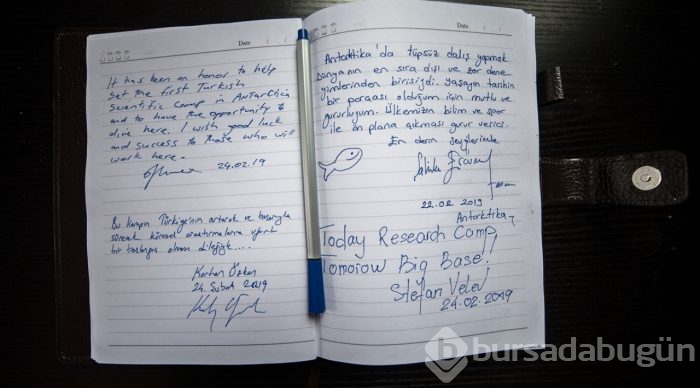 Date / /
It has been an honor to help
set the first Turkish
Scientific Camp in Antarctica
and to have the opportunity to
dive here. I wish good luck
and success to those who will
work here.
24.02.19
Bu kampın Türkiye'nin artarak ve başarıyla
sürecek küresel araştırmalarına uğurlu
bir başlangıç olması dileğiyle...
Korhan Özkan
24 Şubat 2019
Date / /
Antarktika'da tüpsüz dalış yapmak
Dünyanın en sıra dışı ve zor dene-
yimlerinden birisiydi. Yaşayan tarihin
bir parçası olduğum için mutlu ve
gururluyum. Ülkemizin bilim ve spor
ile ön plana çıkması gurur verici.
En derin sevgilerimle
Şahika Ercümen
22.02 2019
Antarktika
Today Research Camp
Tomorow Big Base!
Stefan Velev
24.02.2019
bursadabugün